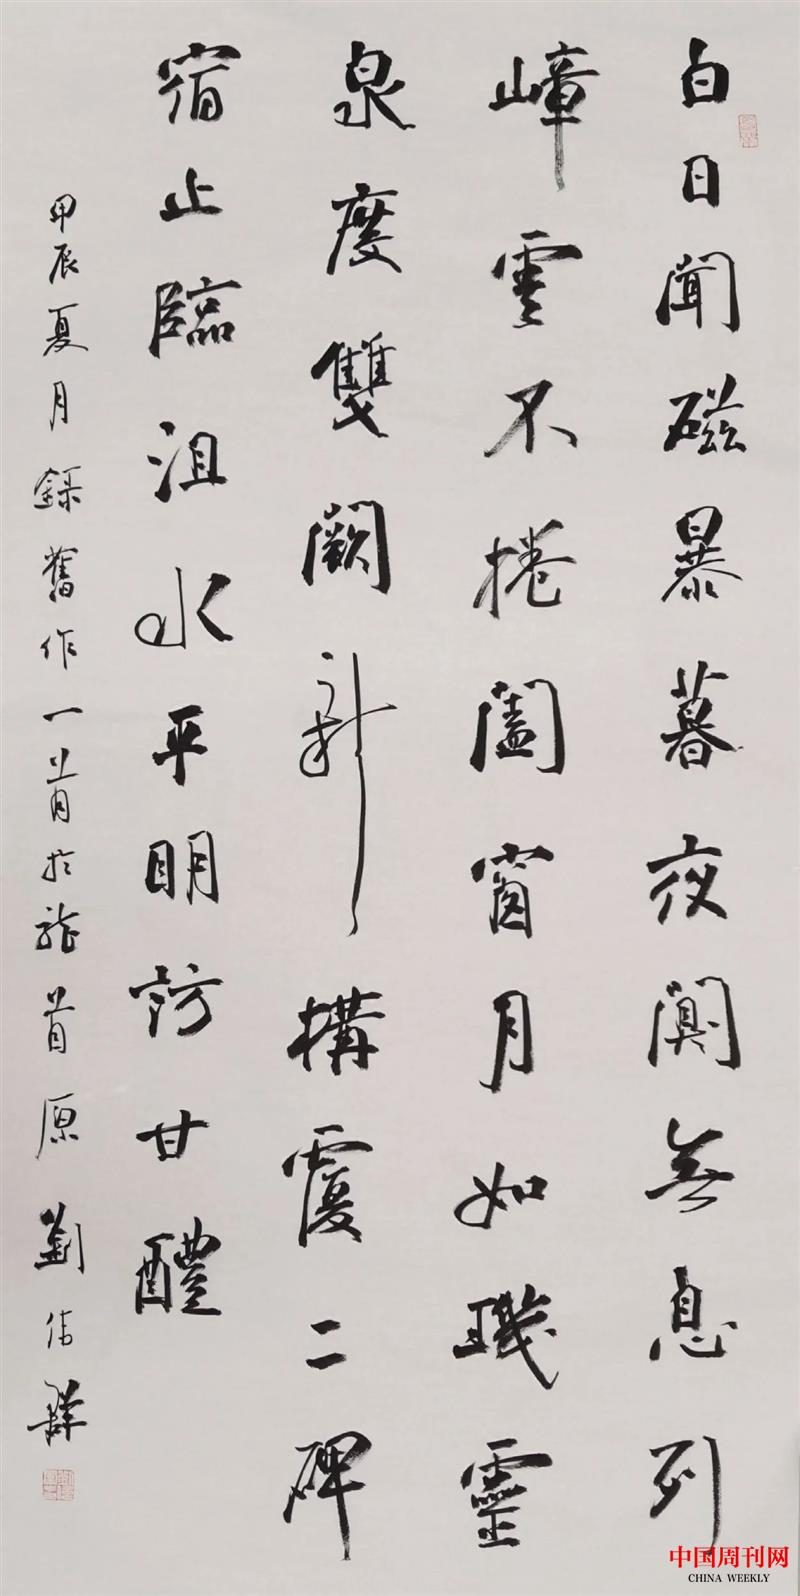 白日聞磁暴暮夜闃無息列
嶂雲不捲闔窗月如璣靈
泉度雙闕新構覆二碑
宿止臨沮水平明訪甘醴
甲辰夏月錄舊作一首於龍首原 劉偉
中国周刊网
CHINA WEEKLY